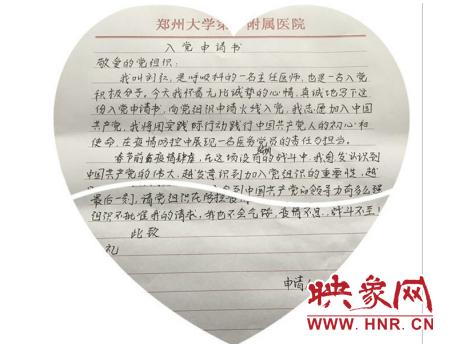 郑州大学第 附属医院
入党申请书
敬爱的党组织：
我叫刘红，是呼吸科的一名主任医师，也是一名入党
积极分子。今天我怀着无比诚挚的心情，真诚地写下这
份入党申请书，向党组织申请火线入党，我志愿加入中国
共产党，我将用实际行动践行中国共产党人的初心和
使命，在疫情防控中展现一名医务党员的责任与担当。
春节前后疫情肆虐，在这场没有 的战斗中，我愈发认识到
中国共产党的伟大，越发意识到加入党组织的重要性，越
到中国共产党的领导力有多么强
最后一刻，请党组织在防控疫情
组织不批准我的请求，我也不会气馁，疫情不退，战斗不止！
此致
礼
申请人
映象网
WWW.HNR.CN